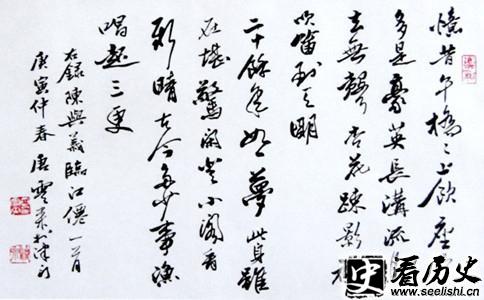 憶昔午橋々上飲座中
多是豪英長溝流月
去無聲杏花踈影裡
吹笛到天明
二十餘年如一夢此身雖
在堪驚閒登小閣看
新晴古今多少事漁
唱起三更
右錄陳與義臨江僊一首
庚寅仲春唐雲來於津門
史
看历史
www.seelishi.cn